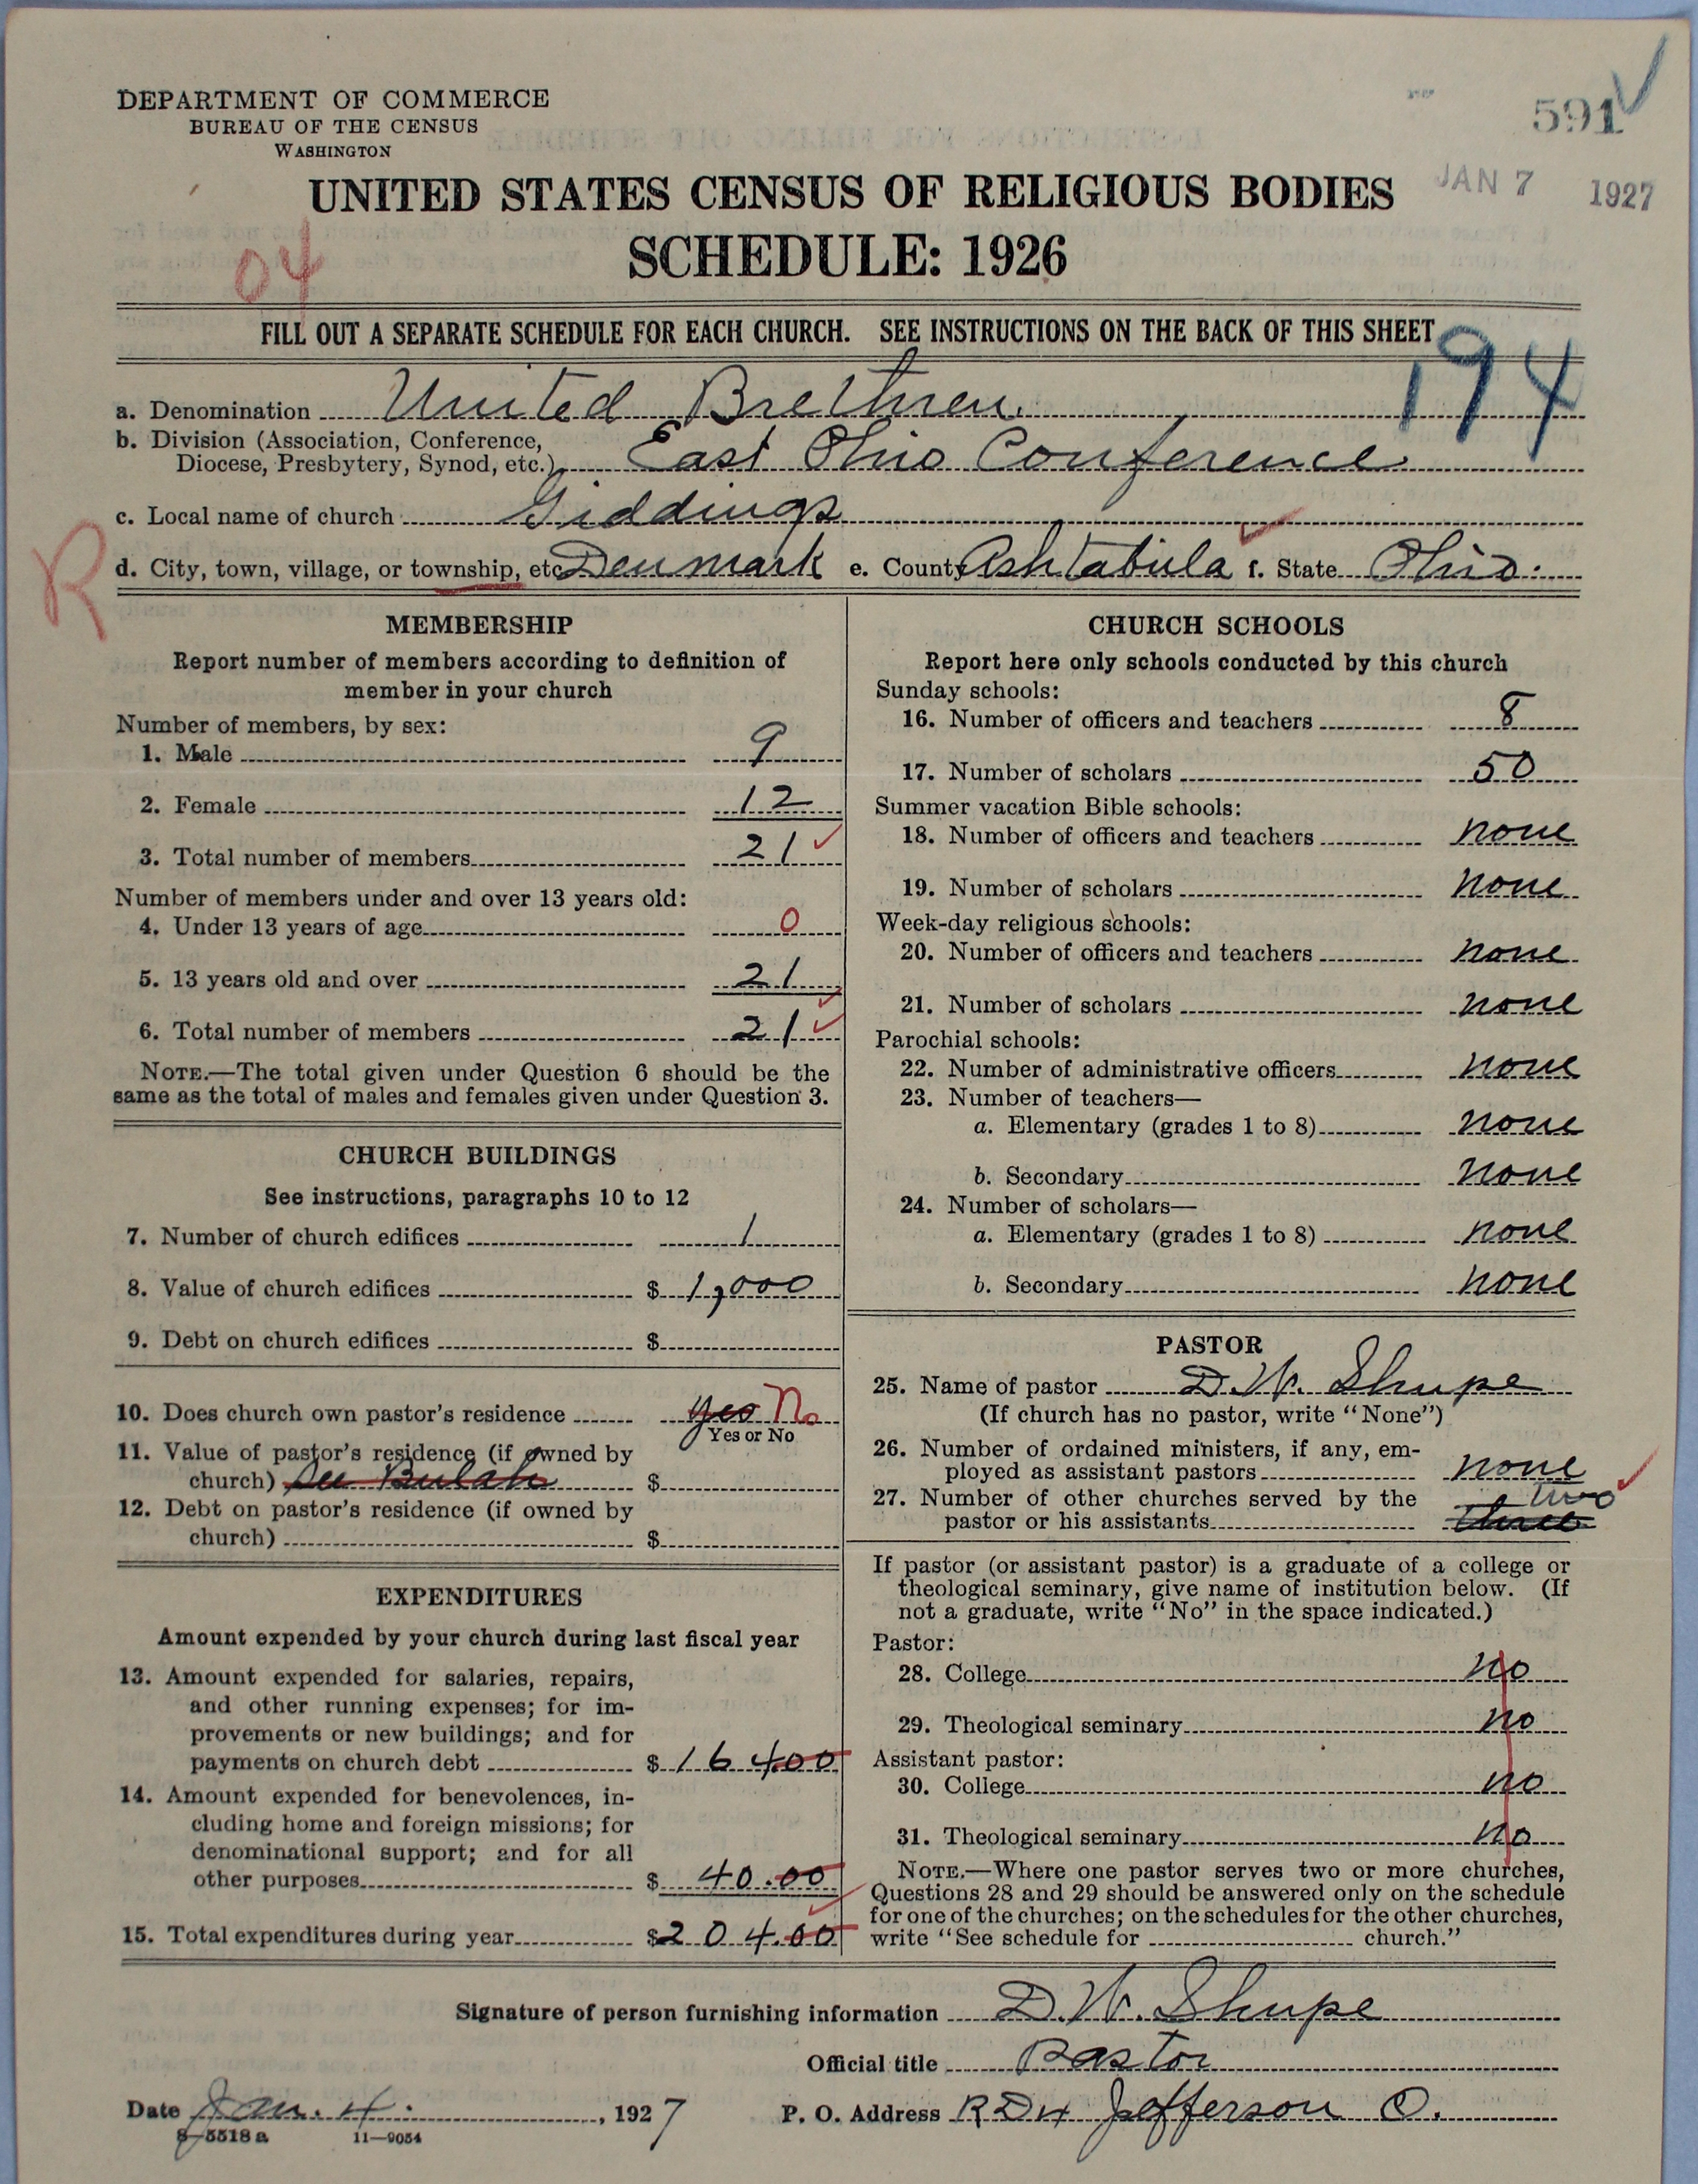 DEPARTMENT OF COMMERCE
BUREAU OF THE CENSUS
WASHINGTON
591
JAN 7 1927
UNITED STATES CENSUS OF RELIGIOUS BODIES
SCHEDULE: 1926
04
FILL OUT A SEPARATE SCHEDULE FOR EACH CHURCH. SEE INSTRUCTIONS ON THE BACK OF THIS SHEET
194
a. Denomination United Brethren.
b. Division (Association, Conference,
Diocese, Presbytery, Synod, etc.) East Ohio Conference.
c. Local name of church Giddings
R
d. City, town, village, or township, etc. Denmark e. County Ashtabula f. State Ohio.
MEMBERSHIP
Report number of members according to definition of
member in your church
Number of members, by sex:
1. Male 9
2. Female 12
3. Total number of members 21
Number of members under and over 13 years old:
4. Under 13 years of age 0
5. 13 years old and over 21
6. Total number of members 21
NOTE.—The total given under Question 6 should be the
same as the total of males and females given under Question 3.
CHURCH BUILDINGS
See instructions, paragraphs 10 to 12
7. Number of church edifices 1
8. Value of church edifices $ 1,000
9. Debt on church edifices $
10. Does church own pastor's residence yes No
Yes or No
11. Value of pastor's residence (if owned by
church) See Bulah $
12. Debt on pastor's residence (if owned by
church) $
EXPENDITURES
Amount expended by your church during last fiscal year
13. Amount expended for salaries, repairs,
and other running expenses; for im-
provements or new buildings; and for
payments on church debt $ 164.00
14. Amount expended for benevolences, in-
cluding home and foreign missions; for
denominational support; and for all
other purposes $ 40.00
15. Total expenditures during year $ 204.00
CHURCH SCHOOLS
Report here only schools conducted by this church
Sunday schools:
16. Number of officers and teachers 8
17. Number of scholars 50
Summer vacation Bible schools:
18. Number of officers and teachers none
19. Number of scholars none
Week-day religious schools:
20. Number of officers and teachers none
21. Number of scholars none
Parochial schools:
22. Number of administrative officers none
23. Number of teachers—
a. Elementary (grades 1 to 8) none
b. Secondary none
24. Number of scholars—
a. Elementary (grades 1 to 8) none
b. Secondary none
PASTOR
25. Name of pastor D. W. Shupe
(If church has no pastor, write "None")
26. Number of ordained ministers, if any, em-
ployed as assistant pastors none
27. Number of other churches served by the two
pastor or his assistants three
If pastor (or assistant pastor) is a graduate of a college or
theological seminary, give name of institution below. (If
not a graduate, write "No" in the space indicated.)
Pastor:
28. College no
29. Theological seminary no
Assistant pastor:
30. College no
31. Theological seminary no
NOTE.—Where one pastor serves two or more churches,
Questions 28 and 29 should be answered only on the schedule
for one of the churches; on the schedules for the other churches,
write "See schedule for church."
Signature of person furnishing information D. W. Shupe
Official title Pastor
Date Jan. 4. , 1927 P. O. Address RD 4 Jefferson O.
8—5518 a 11—9054